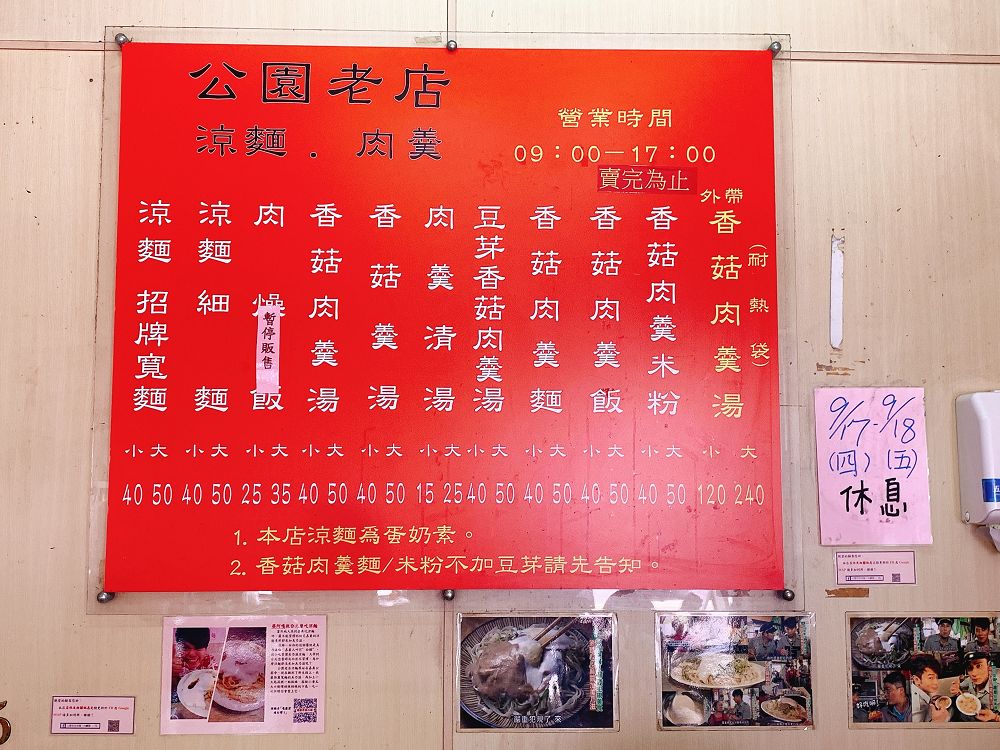 公園老店
涼麵．肉羹
營業時間
09：00－17：00
賣完為止
涼麵 招牌寬麵
小 大
40 50
涼麵 細麵
小 大
40 50
肉燥飯
暫停販售
小 大
25 35
香菇肉羹湯
小 大
40 50
香菇羹湯
小 大
40 50
肉羹清湯
小 大
15 25
豆芽香菇肉羹湯
小 大
40 50
香菇肉羹麵
小 大
40 50
香菇肉羹飯
小 大
40 50
香菇肉羹米粉
小 大
40 50
外帶
香菇肉羹湯
（耐熱袋）
小 大
120 240
1. 本店涼麵為蛋奶素。
2. 香菇肉羹麵/米粉不加豆芽請先告知。
9/17-9/18
(四) (五)
休息